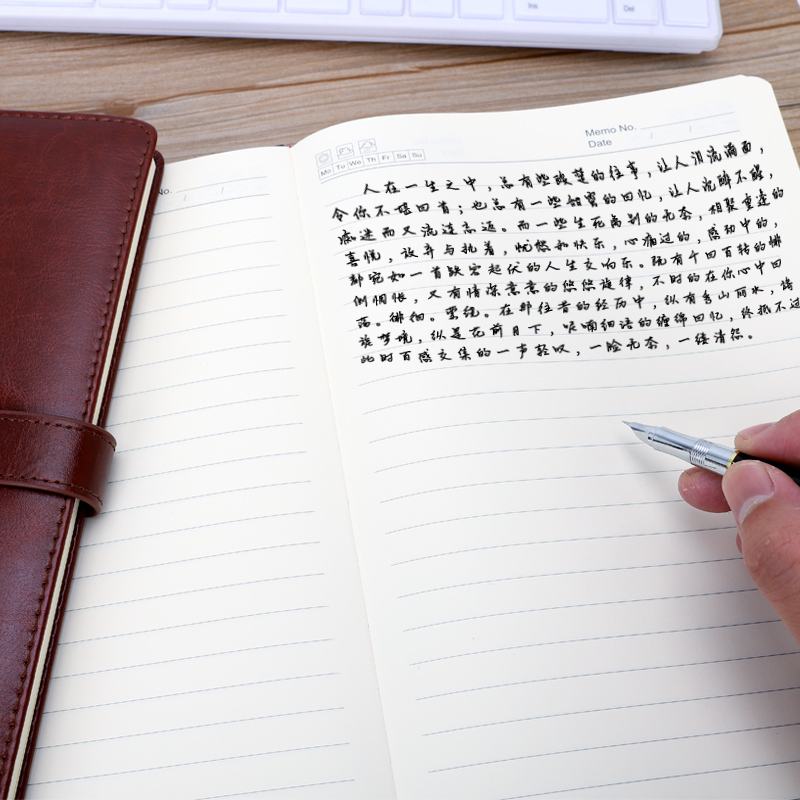 Ins
Del
No.
Memo No.
Date / /
Mo Tu We Th Fr Sa Su
人在一生之中，总有些酸楚的往事，让人泪流满面，
令你不堪回首；也总有一些甜蜜的回忆，让人沉醉不醒，
痴迷而又流连忘返。而一些生死离别的无奈，相聚重逢的
喜悦，放弃与执着，忧愁和快乐，心痛过的，感动中的，
都宛如一首跌宕起伏的人生交响乐。既有千回百转的悱
恻惆怅，又有情深意意的悠悠旋律，不时的在你心中回
荡。徘徊。萦绕。在那往昔的经历中，纵有秀山丽水，旖
旎梦境，纵是花前月下，呢喃细语的缠绵回忆，终抵不过
此时百感交集的一声轻叹，一脸无奈，一缕清怨。